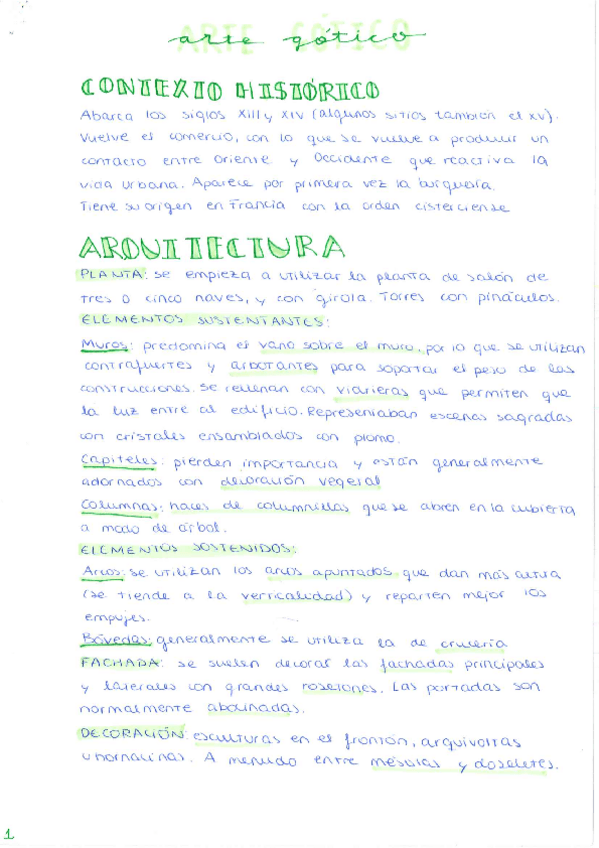 arte gótico
CONTEXTO HISTÓRICO
Abarca los siglos XIII y XIV (algunos sitios también el XV).
Vuelve el comercio, con lo que se vuelve a producir un
contacto entre Oriente y Occidente que reactiva la
vida urbana. Aparece por primera vez la burguesía.
Tiene su origen en Francia con la orden cisterciense
ARQUITECTURA
PLANTA: se empieza a utilizar la planta de salón de
tres o cinco naves, y con girola. Torres con pináculos.
ELEMENTOS SUSTENTANTES:
Muros: predomina el vano sobre el muro, por lo que se utilizan
contrafuertes y arbotantes para soportar el peso de las
construcciones. Se rellenan con vidrieras que permiten que
la luz entre al edificio. Representaban escenas sagradas
con cristales ensamblados con plomo.
Capiteles: pierden importancia y están generalmente
adornados con decoración vegetal
Columnas: haces de columnillas que se abren en la cubierta
a modo de árbol.
ELEMENTOS SOSTENIDOS:
Arcos: se utilizan los arcos apuntados que dan más altura
(se tiende a la verticalidad) y reparten mejor los
empujes.
Bóvedas: generalmente se utiliza la de crucería
FACHADA: se suelen decorar las fachadas principales
y laterales con grandes rosetones. Las portadas son
normalmente abocinadas.
DECORACIÓN: esculturas en el frontón, arquivoltas
u hornacinas. A menudo entre ménsulas y doseletes.
1